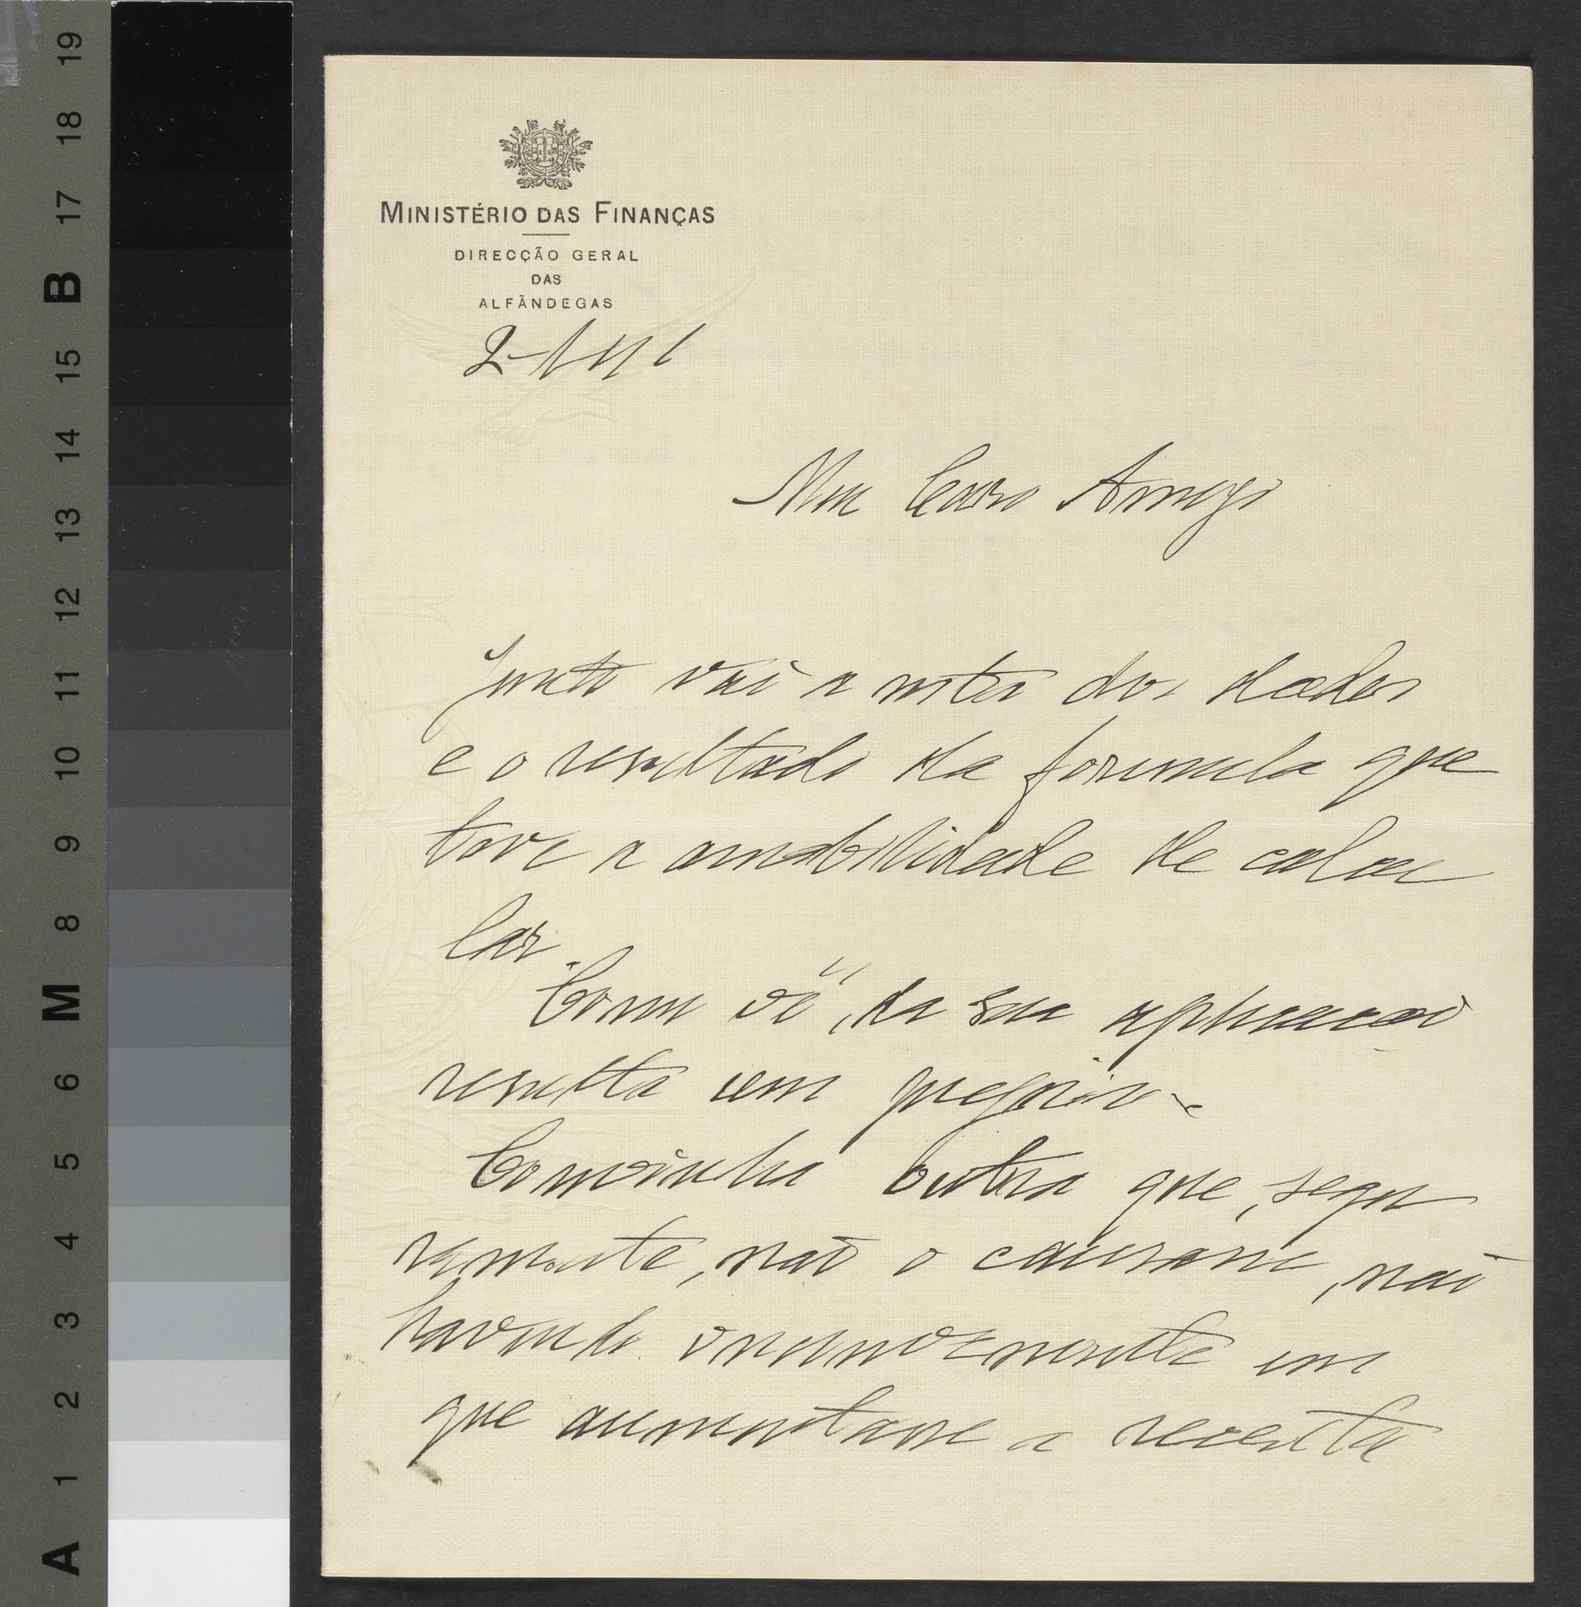 MINISTÉRIO DAS FINANÇAS
DIRECÇÃO GERAL
DAS
ALFÂNDEGAS
Meu Caro Amigo
Junto vai a nota dos dados
e o resultado da formula que
teve a amabilidade de calcu
lar.
Como vê, da sua applicação
resulta um prejuizo.
Convinha outra que, segu
ramente, não o causasse, não
havendo inconveniente em
que aumentasse a receita
19
18
17
B
15
14
13
12
11
10
9
8
M
6
5
4
3
2
1
A